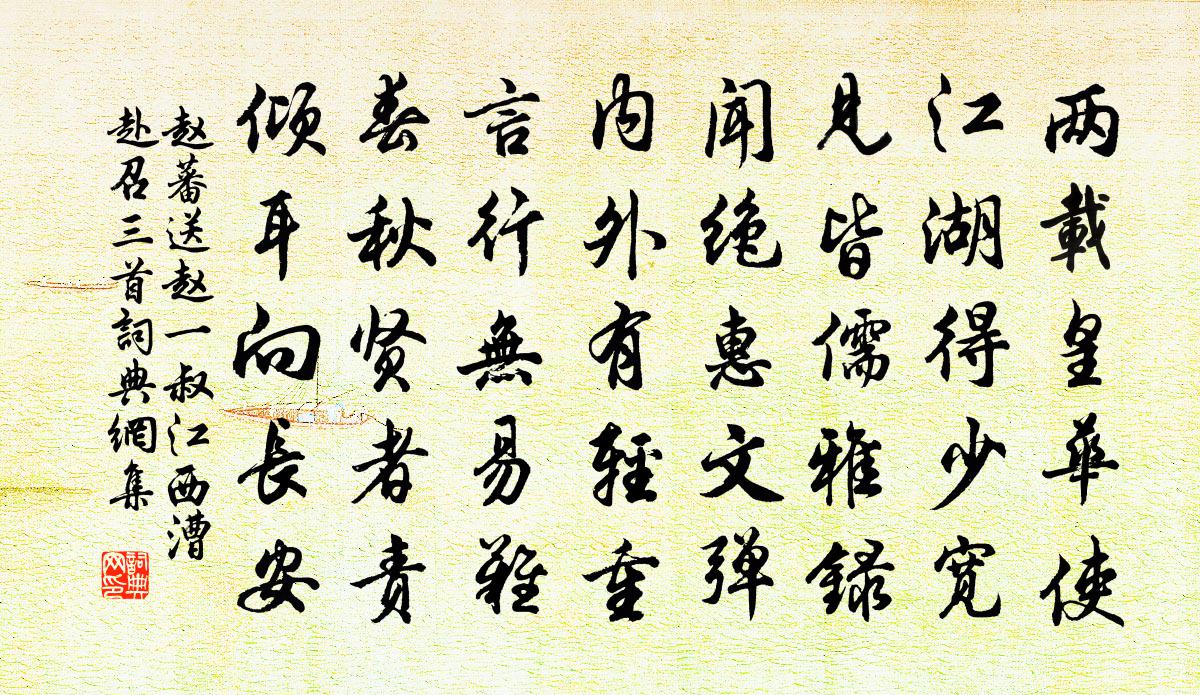 两載皇華使
江湖得少寛
見皆儒雅録
聞绝惠文弹
内外有輕重
言行無易難
春秋贤者责
倾耳向長安
赵蕃送赵一叔江西漕
赴召三首詞典網集
詞典网印